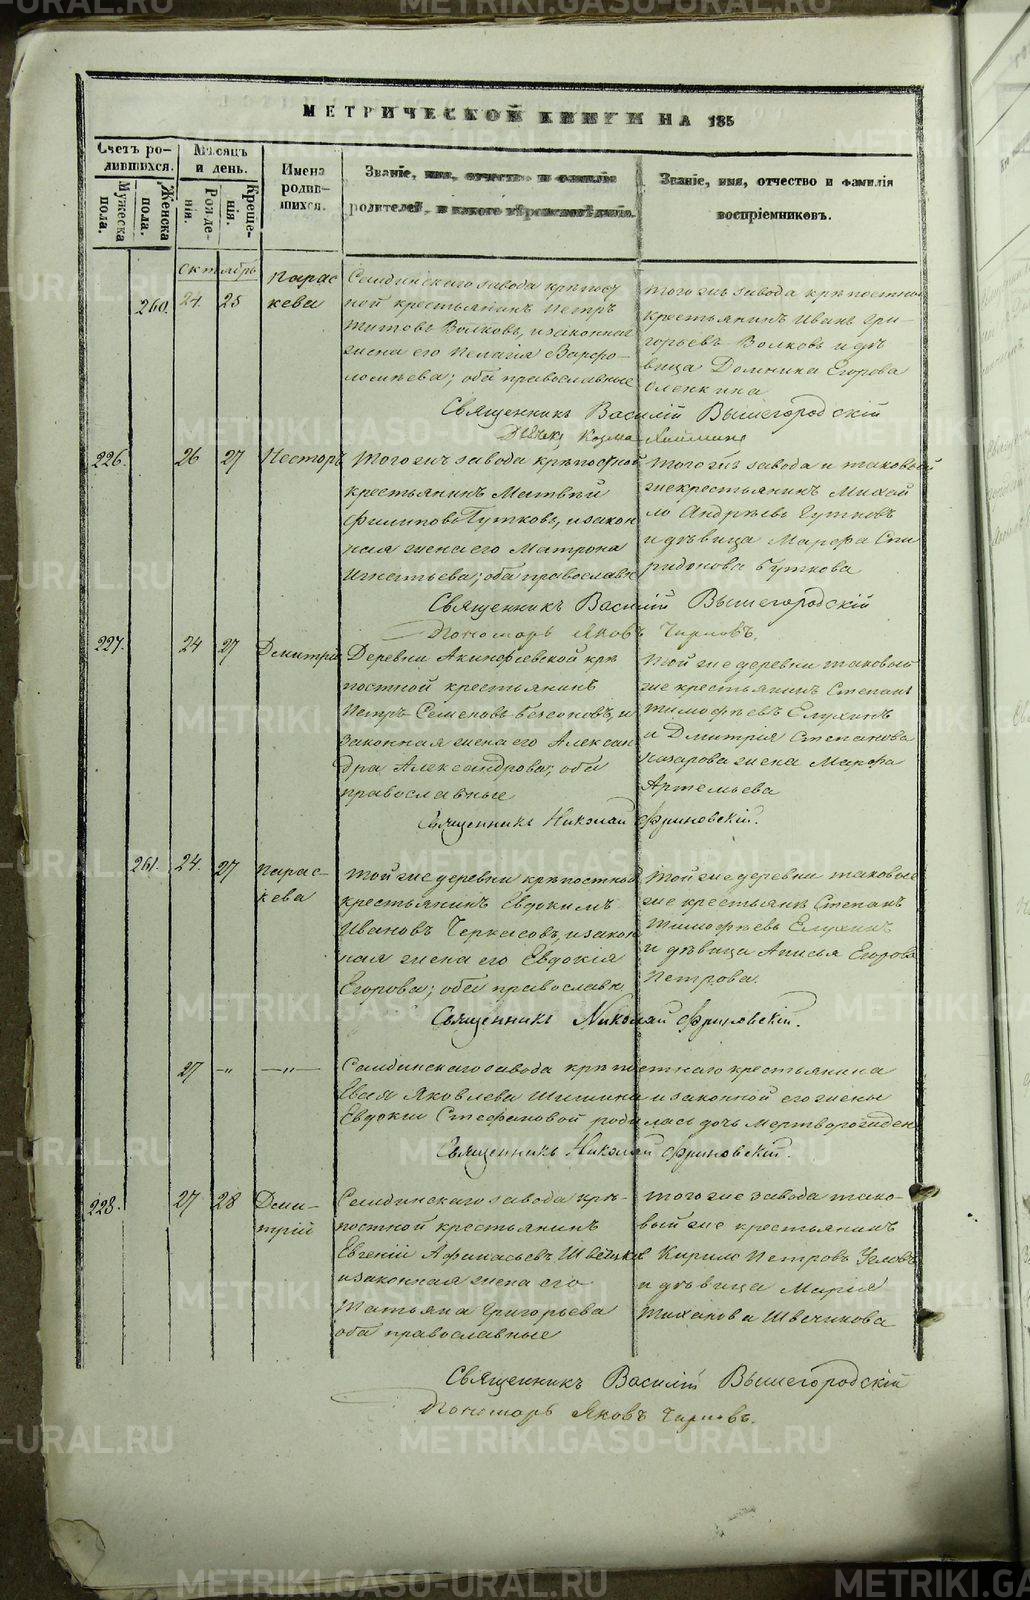 МЕТРИЧЕСКОЙ КНИГИ НА 185
Счетъ родившихся.
Мѣсяцъ и день.
Имена родившихся.
Званіе, имя, отчество и фамилія родителей, и какого вѣроисповѣданія.
Званіе, имя, отчество и фамилія воспріемниковъ.
Мужеска пола.
Женска пола.
Рожденія.
Крещенія.
октябрь
260. 24. 25 Парас
кева
Салдинскаго завода крѣпост
ной крестьянинъ Петръ
Титовъ Волковъ, и законная
жена его Пелагія Варфо-
ломѣева; оба православные
того же завода крѣпостной
крестьянинъ Иванъ Гри-
горьевъ Волковъ и дѣ
вица Домника Егорова
Оленкина
Священникъ Василій Вышегородскій
Дьячекъ Козма
226. 26 27 Несторъ
Того же завода крѣпостной
крестьянинъ Матвей
Филиповъ Гутковъ, и закон
ная жена его Матрона
Игнатьева; оба православн
того же завода и таковой
же крестьянинъ Михай
ло Андрѣевъ Гутковъ
и дѣвица Марфа Спи
ридонова Гуткова
Священникъ Василій Вышегородскій
Пономарь Яковъ
227. 24 27 Дмитрій
Деревни Акинфіевской крѣ
постной крестьянинъ
Петръ Семеновъ и
законная жена его Алексан
дра Александрова; оба
православные
той же деревни таковый
же крестьянинъ Степанъ
Тимофѣевъ Елухинъ
и Дмитрія Степанова
Назарова жена Марфа
Артемьева
Священникъ Николай Фриновскій.
261. 24. 27 Парас-
кева
Той же деревни крѣпостной
крестьянинъ Евдокимъ
Ивановъ Черкасовъ, и закон
ная жена его Евдокія
Егорова; оба православн
той же деревни таковой
же крестьянъ Степанъ
Тимофѣевъ Елухинъ
и дѣвица Анисья Егорова
Петрова.
Священникъ Николай Фриновскій.
27 —"— —"—
Салдинскаго завода крѣпостнаго крестьянина
Яковлева Шишкина и законной его жены
Евдокіи Стефановой родилась дочь мертворожден
Священникъ Николай Фриновскій.
228. 27 28 Дми-
трій
Салдинскаго завода крѣ-
постной крестьянинъ
Евгеній Афанасьевъ
и законная жена его
Татьяна Григорьева
оба православные
того же завода тако-
вый же крестьянинъ
Кирило Петровъ
и дѣвица Марія
Тиханова Швечикова
Священникъ Василій Вышегородскій
Пономарь Яковъ
METRIKI.GASO-URAL.RU